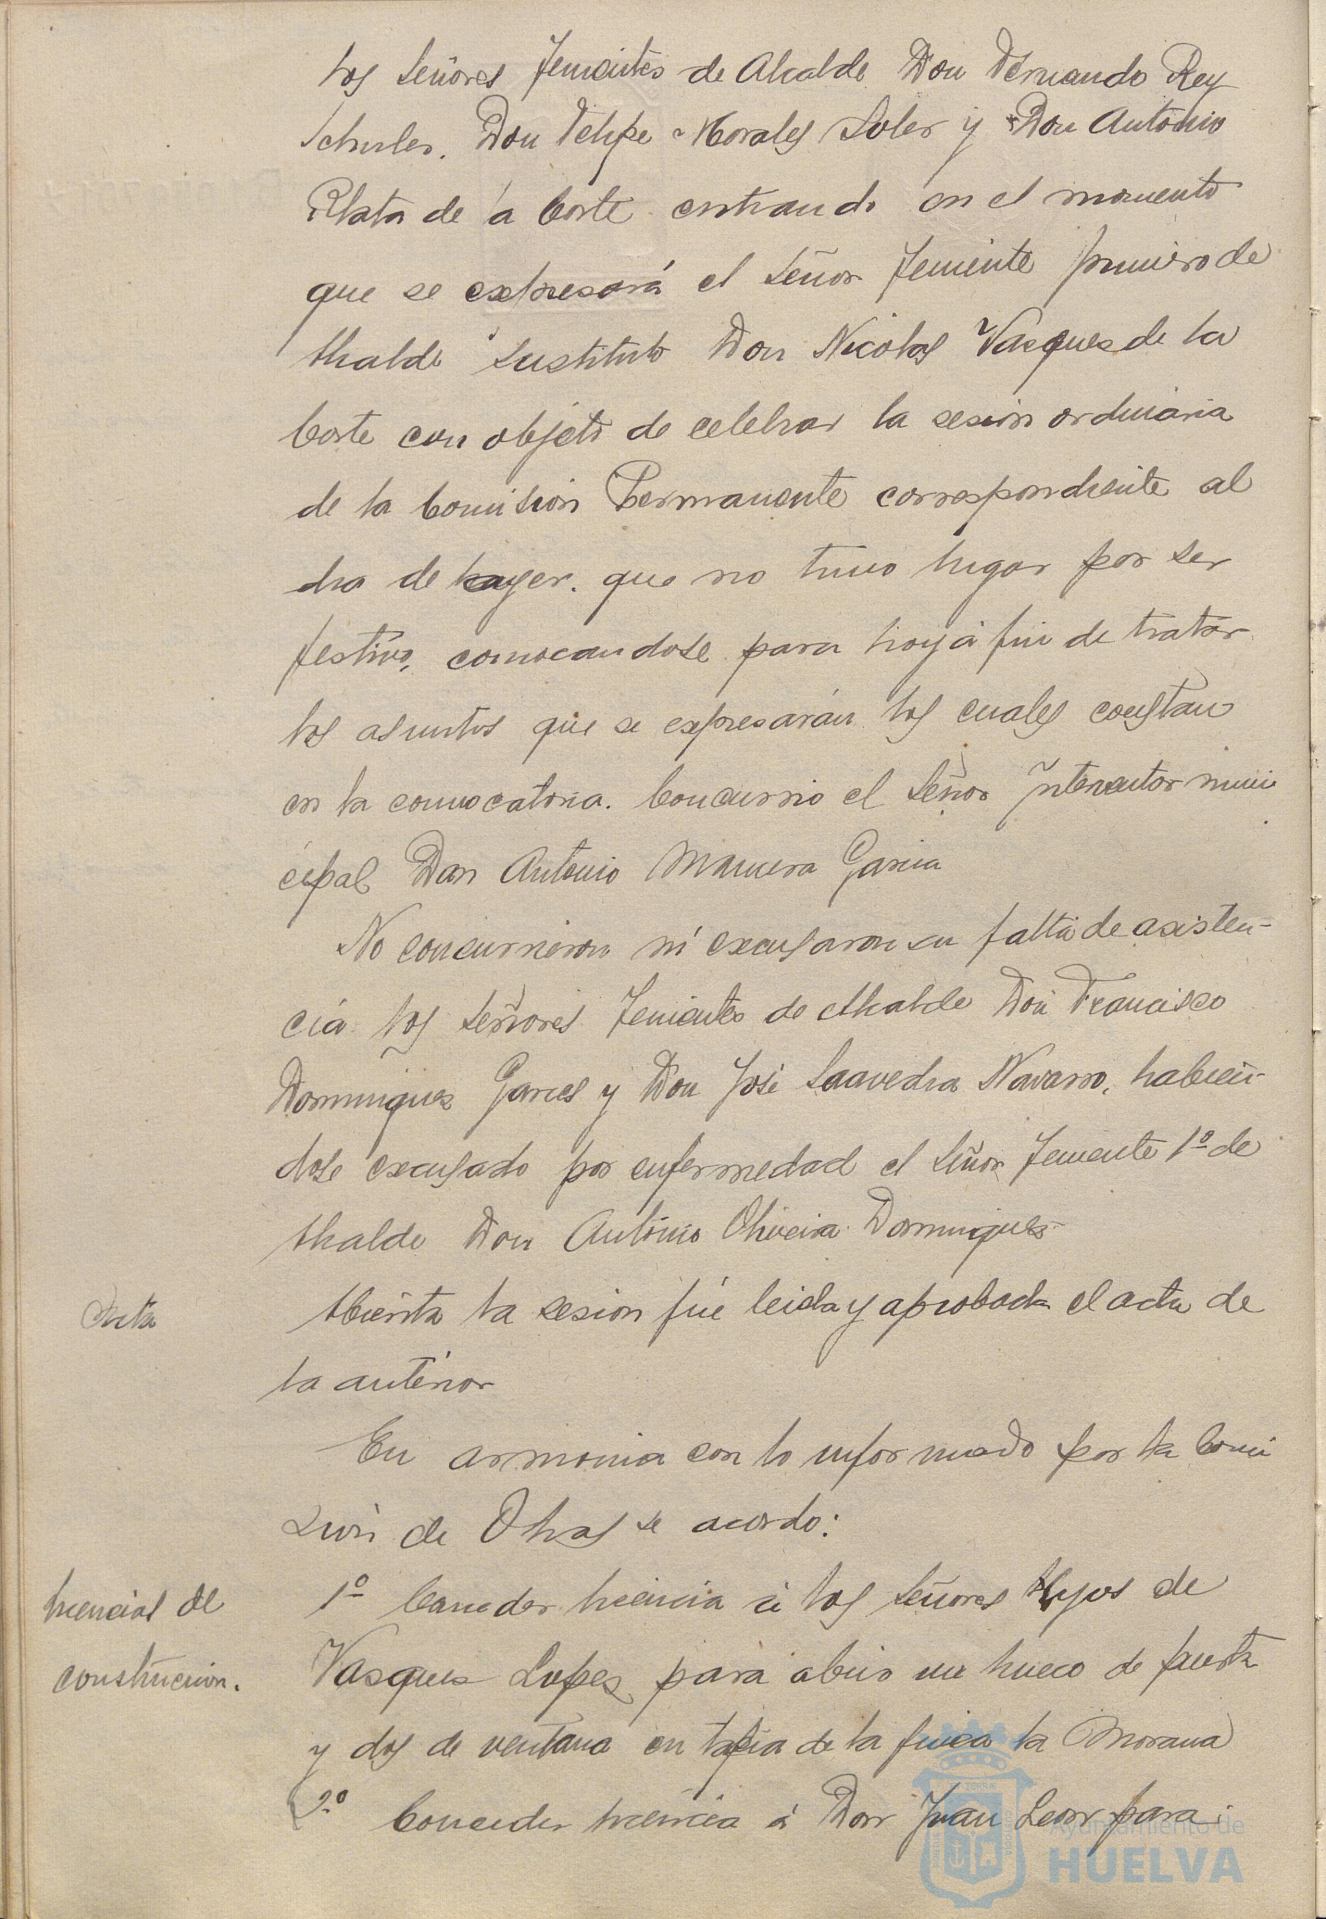 los Señores Tenientes de Alcalde Don Fernando Rey
Schuler. Don Felipe Morales Soler y Don Antonio
Plata de la Corte entrando en el momento
que se expresará el Señor Teniente primero de
Alcalde Sustituto Don Nicolas Vasques de la
Corte con objeto de celebrar la sesion ordinaria
de la Comision Permanente correspondiente al
dia de hayer. que no tuvo lugar por ser
festivo, convocandose para hoy á fin de tratar
los asuntos que se expresarán los cuales constan
en la convocatoria. Concurrio el Señor Interventor muni
cipal Don Antonio Mancera Garcia
No concurrieron ni excusaron su falta de asisten-
cia los Señores Tenientes de Alcalde Don Francisco
Dominguez Garces y Don José Saavedra Navarro, habien-
dose excusado por enfermedad el Señor Teniente 1º de
Alcalde Don Antonio Oliveira Domingues
Acta
Abierta la sesion fué leida y aprobada el acta de
la anterior
En armonia con lo informado por la Comi
sion de Obras se acordo:
Licencias de
construccion.
1º Conceder licencia á los Señores Hijos de
Vasques Lopes para abrir un hueco de puerta
y dos de ventana en tapia de la finca la Morana
2.º Conceder licencia á Don Juan Leon para
Ayuntamiento de
HUELVA